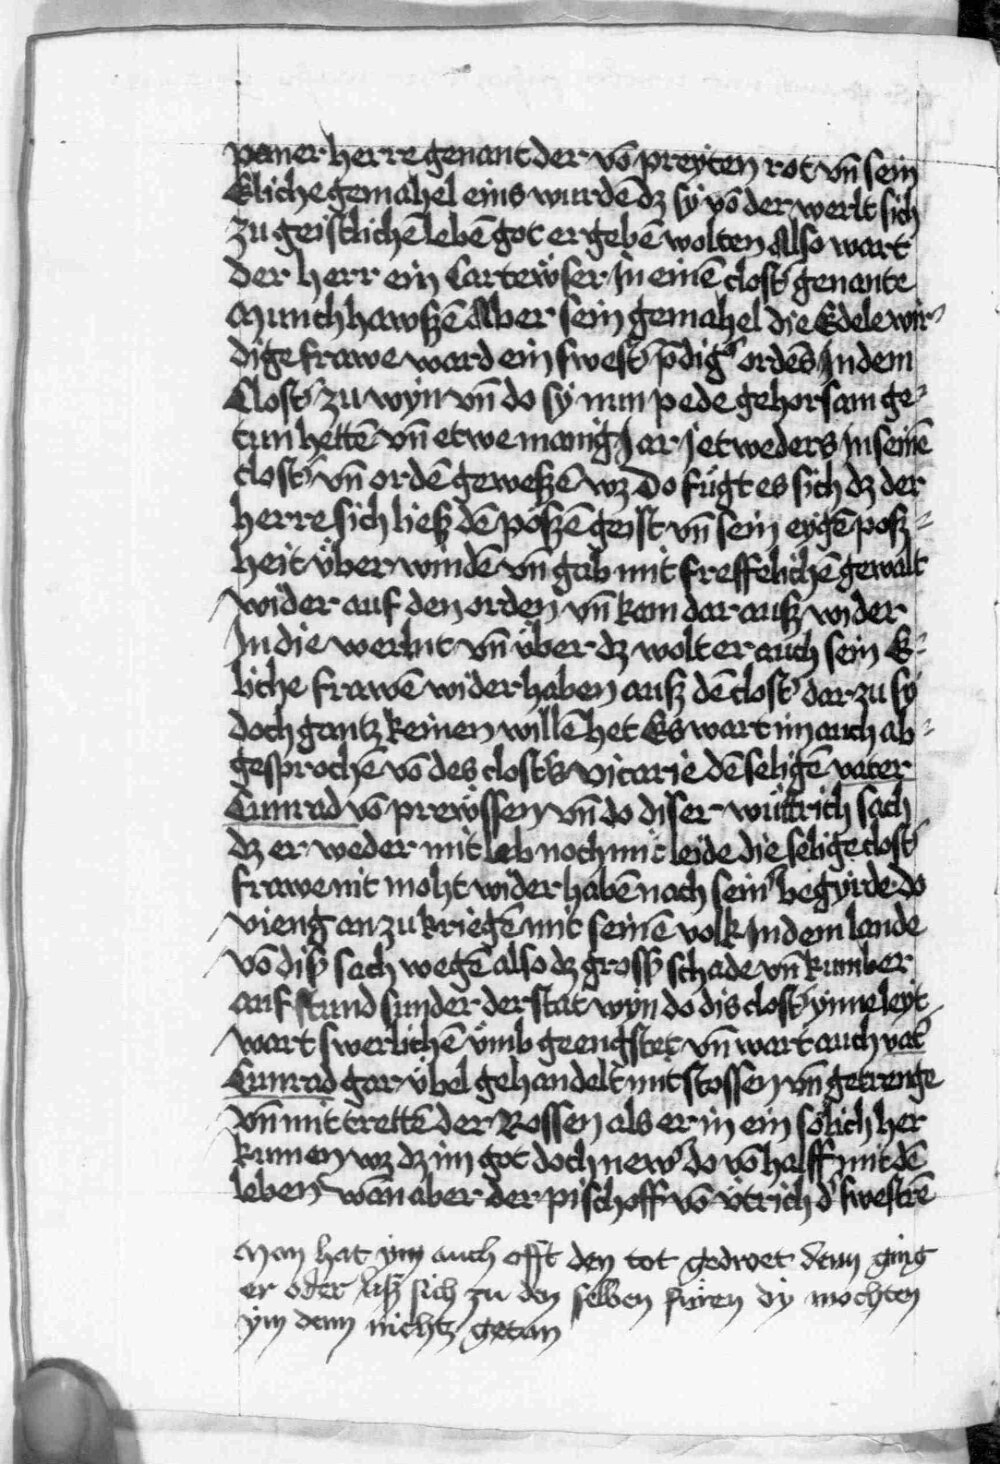 paner herre genant der vō preyten rot vn̄ sein
Eliche gemahel eins wurdē dz sy vō der werlt sich
zu geistlichē lebē got ergebē wolten Also wart
der herr ein Cartewser In einē clost' genante
Munchhawszē Aber sein gemahel die Edele wir
dige frawe ward ein swest' p̄dig' ordēs In dem
Clost' zu wyn vn̄ do sy nun pede gehorsam ge-
tun hettē vn̄ etwe manig Jar jetweders In seinē
clost' vn̄ ordē geweszē wz Do fügt es sich dz der
herre sich liesz dē pöszē geist vn̄ sein eygē posz-
heit über windē vn̄ gab mit freffelichē gewalt
wider auf den orden vn̄ kam dar ausz wider
In die werlnt vn̄ über dz wolt er auch sein E-
liche frawē wider haben ausz dē clost' dar zu sy
doch gantz keinen willē het Es wart im auch ab-
gesprochē vō des clost's vicarie dē seligē vater
Cunrad vō prewssen vn̄ do diser wüttrich sach
dz er weder mit lieb noch mit leide die selige clost'
frawe nit moht wider habē nach sein' begyrde do
vieng an zu kriegē mit seinē volk In dem lande
vō dis' sach wegē also dz gross' schade vn̄ kumber
auf stund sunder der stat wyn do dis clost' ynne leyt
wart swerlichē ümb geengstet vn̄ wart auch vat'
Cunrad gar übel gehandelt mit stossen vn̄ getrenge
vn̄ mit trettē der Rossen als er in ein sölich her
kumen wz dz im got doch new' do vō halff mit dē
leben wan aber der pischoff vō ütrich d' swestrē
Man hat ym auch offt den tot gedroet denn ging
er oder lisz sich zu den selben füren dy mochten
ym denn nichtz getan